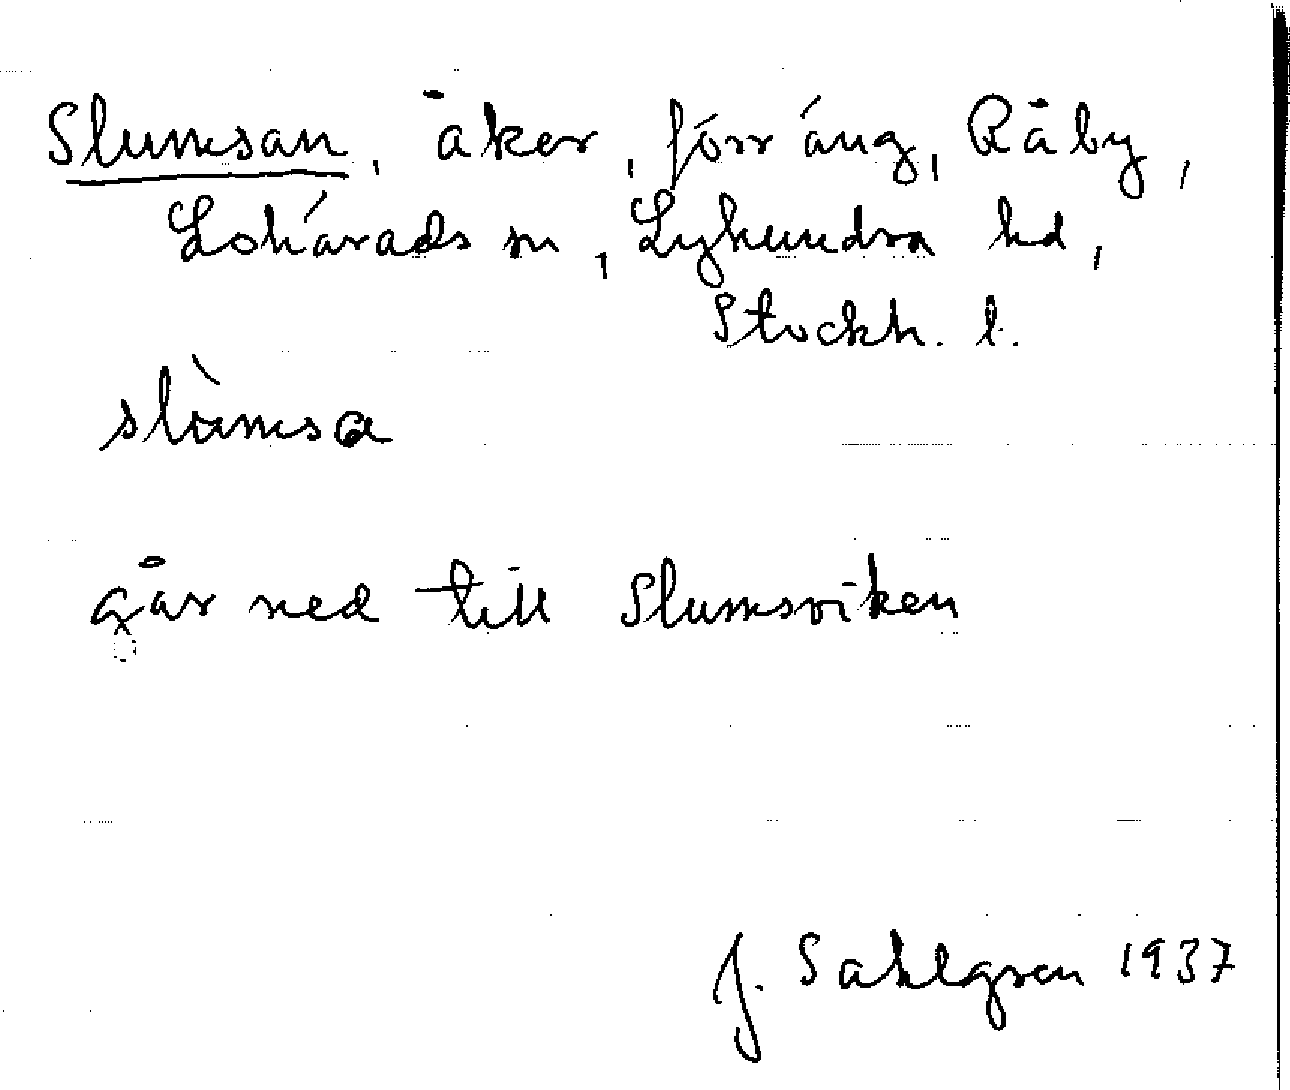 Slumsan, åker, förr äng, Råby,
Lohärads sn, Lyhundra hd,
Stockh. l.
slùmsa
går ned till Slumsviken
J. Sahlgren 1937